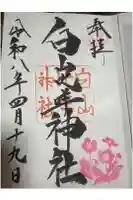 奉拝
白山
神社
白
神社
令和八年四月十九日